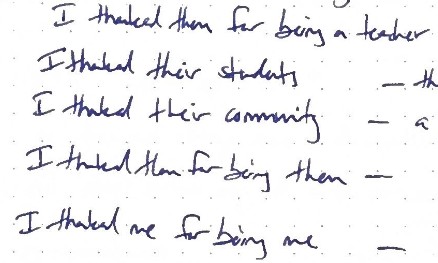 I thanked them for being a teacher
I thanked their students – th
I thanked their community – a
I thanked them for being them –
I thanked me for being me –